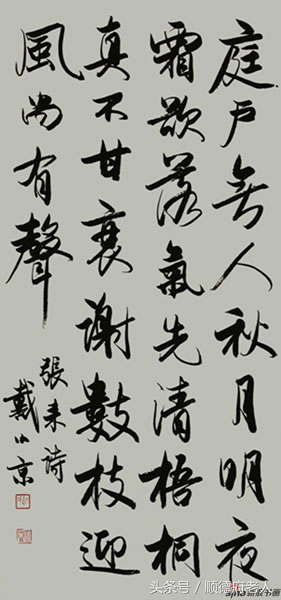 庭戶無人秋月明夜
霜欲落氣先清梧桐
真不甘衰謝數枝迎
風尚有聲
張耒詩
戴小京
头条号 / 顺德府老人